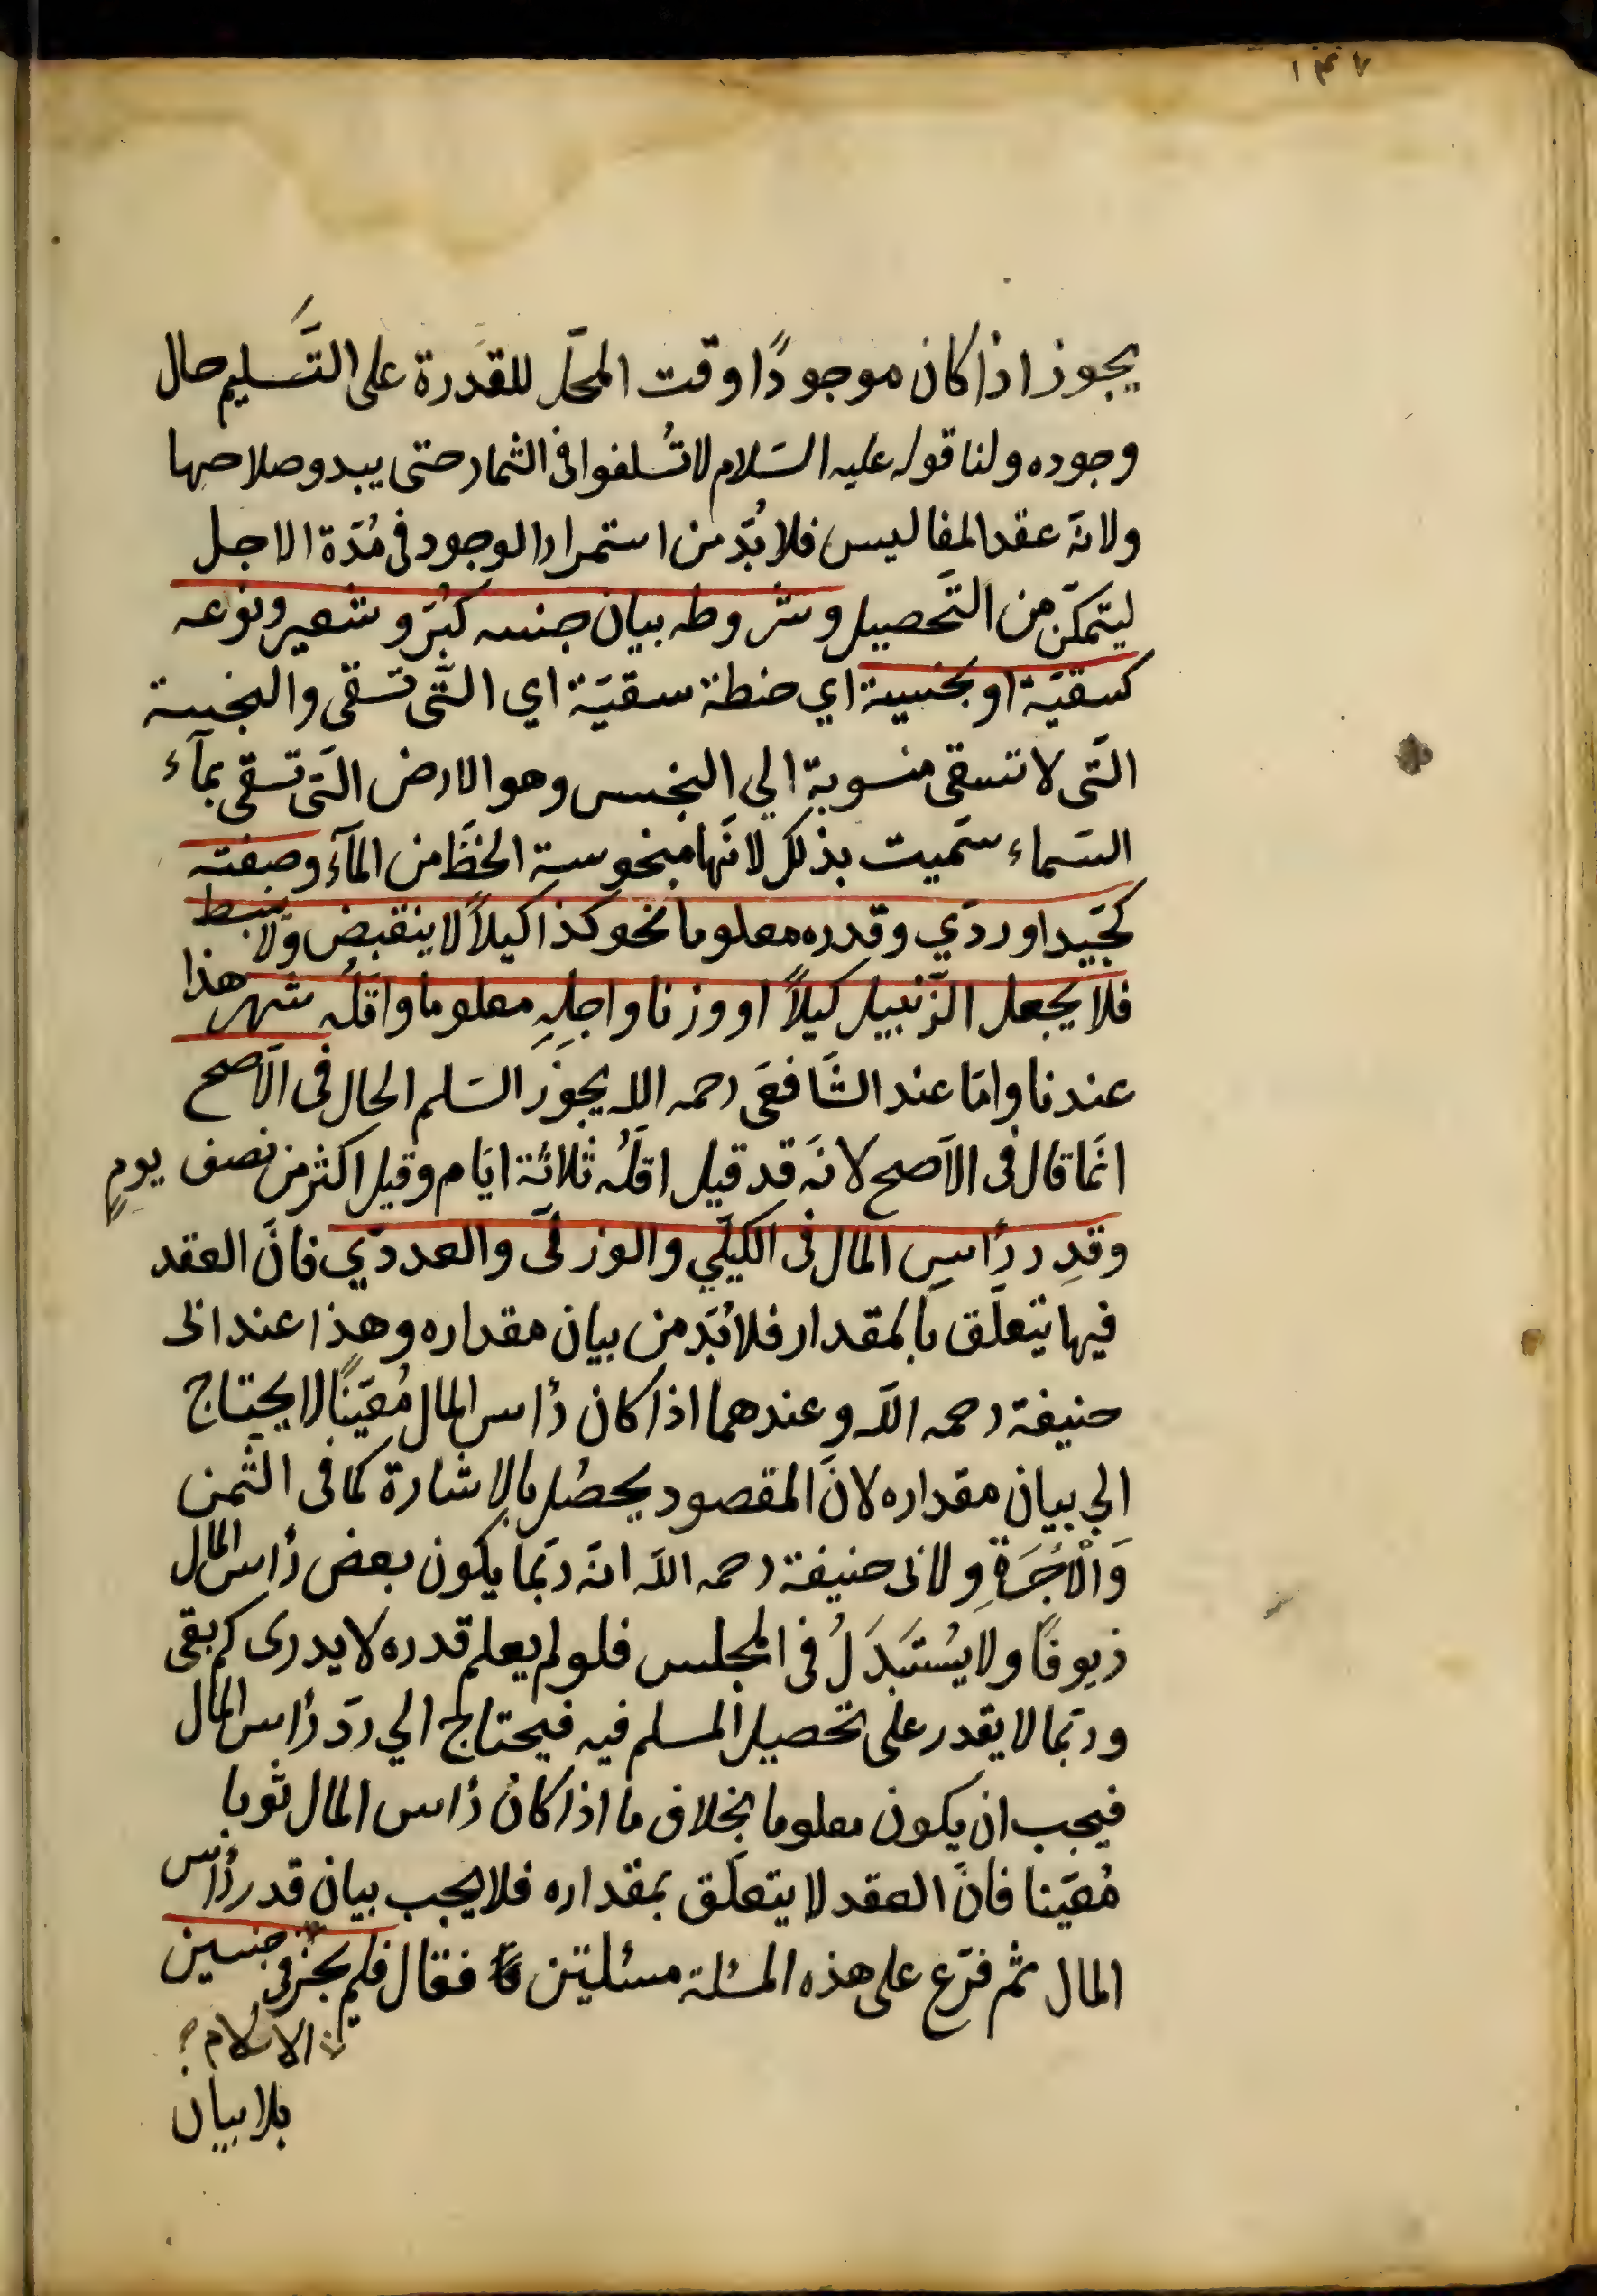 ١٤٧
يجوز اذا كان موجودًا وقت المحلّ للقدرة على التَّسليم حال
وجوده ولنا قوله عليه السَلام لا تُسلفوا فى الثمار حتى يبدو صلاحها
ولانّه عقد المفاليس فلا بُدّ من استمرار الوجود فى مُدّة الاجل
ليتمكّن من التَّحصيل وشروطه بيان جنسه كبُرّ وشعير ونوعه
كسقيّة او بخسية اي حنطة سقيّة اي الّتى تسقى والبخسة
الّتى لا تسقى منسوبة الي البخس وهو الارض الّتى تسقى بمآء
السَماء سمّيت بذلك لانّها مبخوسة الحظّ من المآء وصفته
كجّيد او ردّي وقدره معلوما نحو كذا كيلاً لا ينقبض ولا ينبسط
فلا يجعل الزّنبيل كيلاً او وزنا واجلِهِ معلوما واقلّه شهر هذا
عندنا وامّا عند الشَّافعى رحمه الله يجوز السَلم الحال فى الاَصح
انّما قال فى الاَصح لانّه قد قيل اقلّه ثلاثة ايّام وقيل اكثر من نصف يومٍ
وقدِر رأسِ المال فى الكيلّي والوزنّى والعددّي فانّ العقد
فيها يتعلّق بالمقدار فلا بُدّ من بيان مقداره وهذا عند ابى
حنيفة رحمه اللّه وعندهما اذا كان رأس المال مُعيّنًا لا يحتاج
الي بيان مقداره لانّ المقصود يحصُل بالاشارة كما فى الثّمن
وَالْاُجْرَةِ ولابى حنيفة رحمه اللّه انّه ربّما يكون بعض رأس المال
زيوفًا ولا يُسْتَبدَلُ فى المجلس فلو لم يعلم قدره لا يدرى كم بقى
وربّما لا يقدر على تحصيل المسلم فيه فيحتاج الي ردّ رأس المال
فيجب ان يكون معلوما بخلاف ما اذا كان رأس المال ثوبا
مُعيّنا فانّ العقد لا يتعلّق بمقداره فلا يجب بيان قدر رأس
المال ثم فرّع على هذه المسئلة مسئلتين فقال فلم يجز فى جنسين
الاسلام
بلا بيان